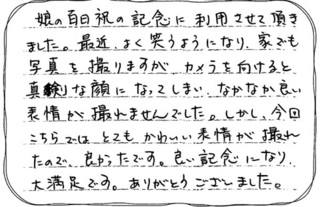 娘の百日祝の記念に利用させて頂き
ました。最近、よく笑うようになり、家でも
写真を撮りますが、カメラを向けると
真剣な顔になってしまい、なかなか良い
表情が撮れませんでした。しかし、今回
こちらでは とてもかわいい表情が撮れ
たので、良かったです。良い記念になり
大満足です。ありがとうございました。